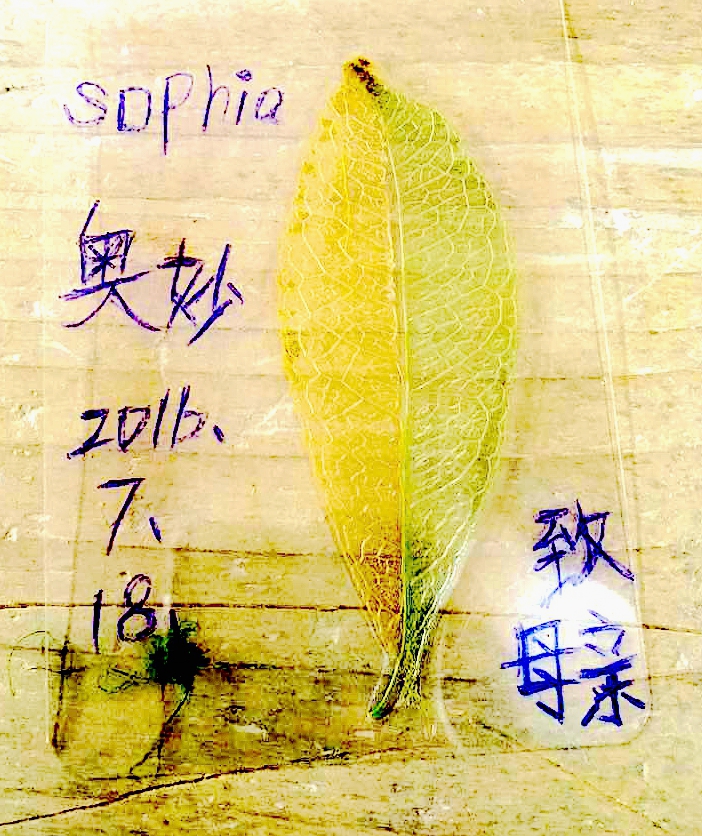 sophia
奥妙
2016、
7、
18、
致
母亲